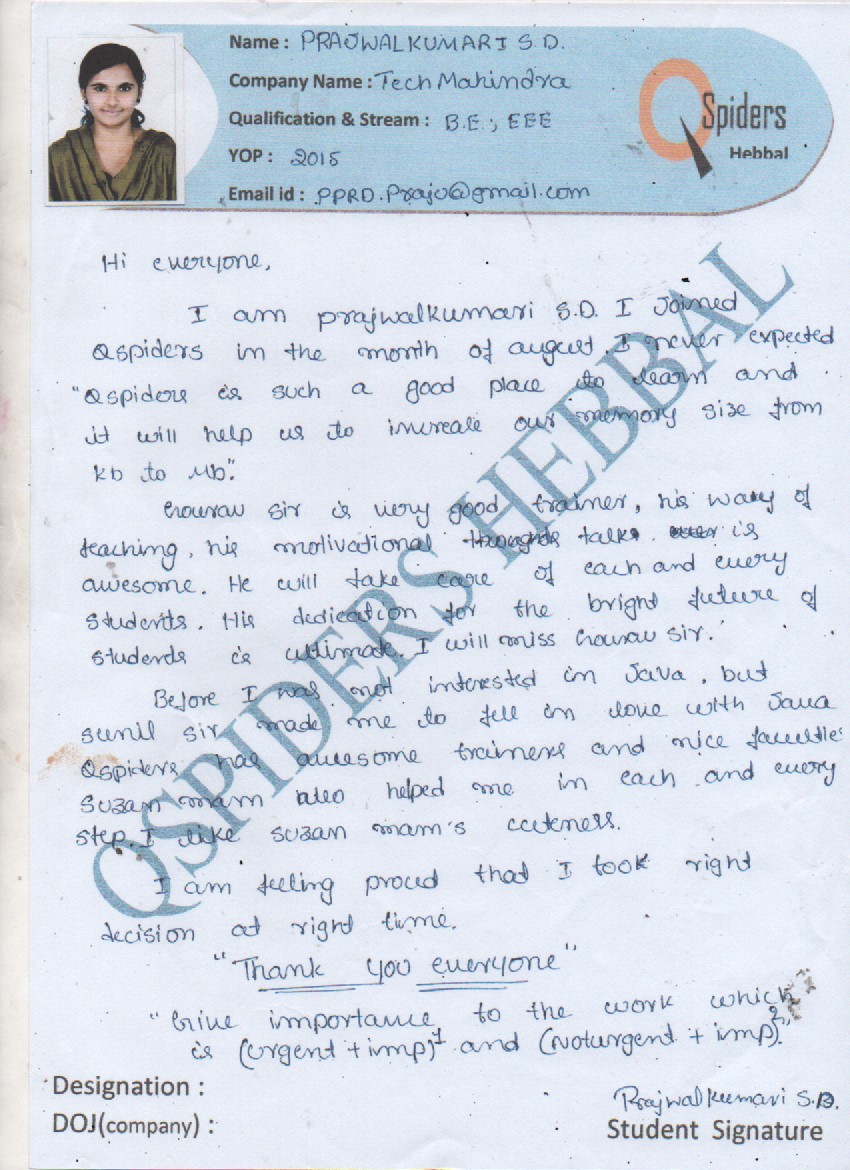 Name : PRAJWALKUMARI S.D.
Company Name : Tech Mahindra
Qualification & Stream : B.E., EEE
YOP : 2015
Email id : PPRD.Praju@gmail.com
QSpiders
Hebbal
Hi everyone,
I am prajwalkumari S.D. I Joined
Qspiders in the month of august. I never expected
"Qspiders is such a good place to learn and
it will help us to increase our memory size from
kb to Mb".
Gourav sir is very good trainer, his way of
teaching, his motivational talks is
awesome. He will take care of each and every
students. His dedication for the bright future of
students is ultimate. I will miss Gourav sir.
Before I was not interested in Java, but
sunil sir made me to fell in love with Java
Qspiders has awesome trainers and nice faculties
Suzan mam also helped me in each and every
step. I like suzan mam's cuteness.
I am feeling proud that I took right
decision at right time.
"Thank you everyone"
"Give importance to the work which
is (urgent + imp)¹ and (Noturgent + imp)²."
QSPIDERS HEBBAL
Designation :
DOJ(company) :
Prajwalkumari S.D.
Student Signature